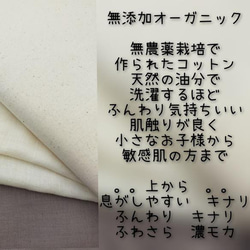 無添加オーガニック
無農薬栽培で
作られたコットン
天然の油分で
洗濯するほど
ふんわり気持ちいい
肌触りが良く
小さなお子様から
敏感肌の方まで
。。上から 。。
息がしやすい キナリ
ふんわり キナリ
ふわさら 濃モカ